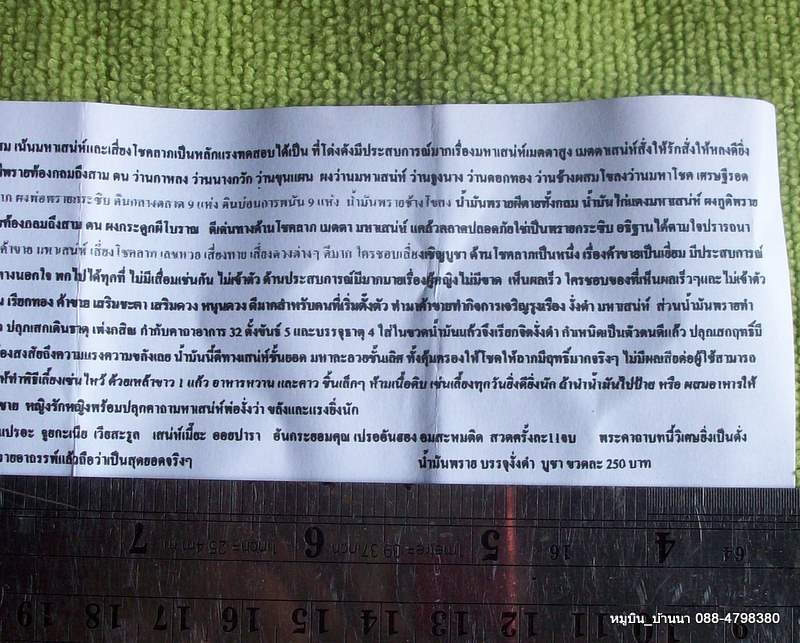 สม เน้นมหาเสน่ห์และเสี่ยงโชคลาภเป็นหลักแรงทดสอบได้เป็น ที่โด่งดังมีประสบการณ์มากเรื่องมหาเสน่ห์เมตตาสูง เมตตาเสน่ห์สั่งให้รักสั่งให้หลงดียิ่ง
พรายท้องกลมถึงสาม ตน ว่านกาหลง ว่านนางกวัก ว่านขุนแผน ผงว่านมหาเสน่ห์ ว่านจูงนาง ว่านดอกทอง ว่านช้างผสมโขลงว่านมหาโชค เศรษฐีรอด
ผงพ่อพรายกระซิบ ดินกลางตลาด 9 แห่ง ดินบ่อนการพนัน 9 แห่ง น้ำมันพรายช้างโขลง น้ำมันพรายผีตายทั้งกลม น้ำมันไก่แดงมหาเสน่ห์ ผงภูติพราย
ท้องกลมถึงสาม ตน ผงกระดูกผีโบราณ ดีเด่นทางด้านโชคลาภ เมตตา มหาเสน่ห์ แคล้วคลาดปลอดภัยใช่เป็นพรายกระซิบ อธิฐานได้ตามใจปรารถนา
ค้าขาย มหาเสน่ห์ เสี่ยงโชคลาภ เลขหวย เสี่ยงทาย เสี่ยงดวงต่างๆ ดีมาก ใครชอบเสี่ยงเชิญบูชา ด้านโชคลาภเป็นหนึ่ง เรื่องค้าขายเป็นเยี่ยม มีประสบการณ์
ทางนอกใจ พกไปได้ทุกที่ ไม่มีเสื่อมเช่นกัน ไม่เข้าตัว ด้านประสบการณ์มีมากมายเรื่องผู้หญิงไม่มีขาด เห็นผลเร็ว ใครชอบของที่เห็นผลเร็วๆและไม่เข้าตัว
เรียกทอง ค้าขาย เสริมชะตา เสริมดวง หนุนดวง ดีมากสำหรับคนที่เริ่มตั้งตัว ทำมาค้าขายทำกิจการเจริญรุ่งเรือง งั่งดำ มหาเสน่ห์ ส่วนน้ำมันพรายทำ
ปลุกเสกเดินธาตุ เพ่งกสิณ กำกับคาถาอาการ 32 ตั้งขันธ์ 5 และบรรจุธาตุ 4 ใส่ในขวดน้ำมันแล้วจึงเรียกจิตงั่งดำ กำเหนิดเป็นตัวตนดีแล้ว ปลุกเสกฤทธิ์มี
ต้องสงสัยถึงความแรงความขลังเลย น้ำมันนี้ดีทางเสน่ห์ชั้นยอด มหาละลวยชั้นเลิศ ทั้งคุ้มครองให้โชคให้ลาภมีฤทธิ์มากจริงๆ ไม่มีผลเสียต่อผู้ใช้สามารถ
ให้ทำพิธีเลี้ยงเซ่นไหว้ ด้วยเหล้าขาว 1 แก้ว อาหารหวาน และคาว ชิ้นเล็กๆ ห้ามเนื้อดิบ เซ่นเลี้ยงทุกวันยิ่งดียิ่งนัก ถ้านำน้ำมันไปป้าย หรือ ผสมอาหารให้
ชาย หญิงรักหญิงพร้อมปลุกคาถามหาเสน่ห์พ่องั่งว่า ขลังและแรงยิ่งนัก
เปรอะ จูยกะเนีย เวียสะรูล เสน่ห์เมี๊ยะ ออยปารา อันกระยอมคุณ เปรออันสอง อมสะหมติด สวดครั้งละ11จบ พระคาถาบทนี้วิเศษยิ่งเป็นดั่ง
รายอาถรรพ์แล้วถือว่าเป็นสุดยอดจริงๆ น้ำมันพราย บรรจุงั่งดำ บูชา ขวดละ 250 บาท
7 1inch = 25.4mm 6 1metre = 39.37inch 5 16 4 64
19 18 17 16 15 14 13 12 11 10
หมูบิน_บ้านนา 088-4798380